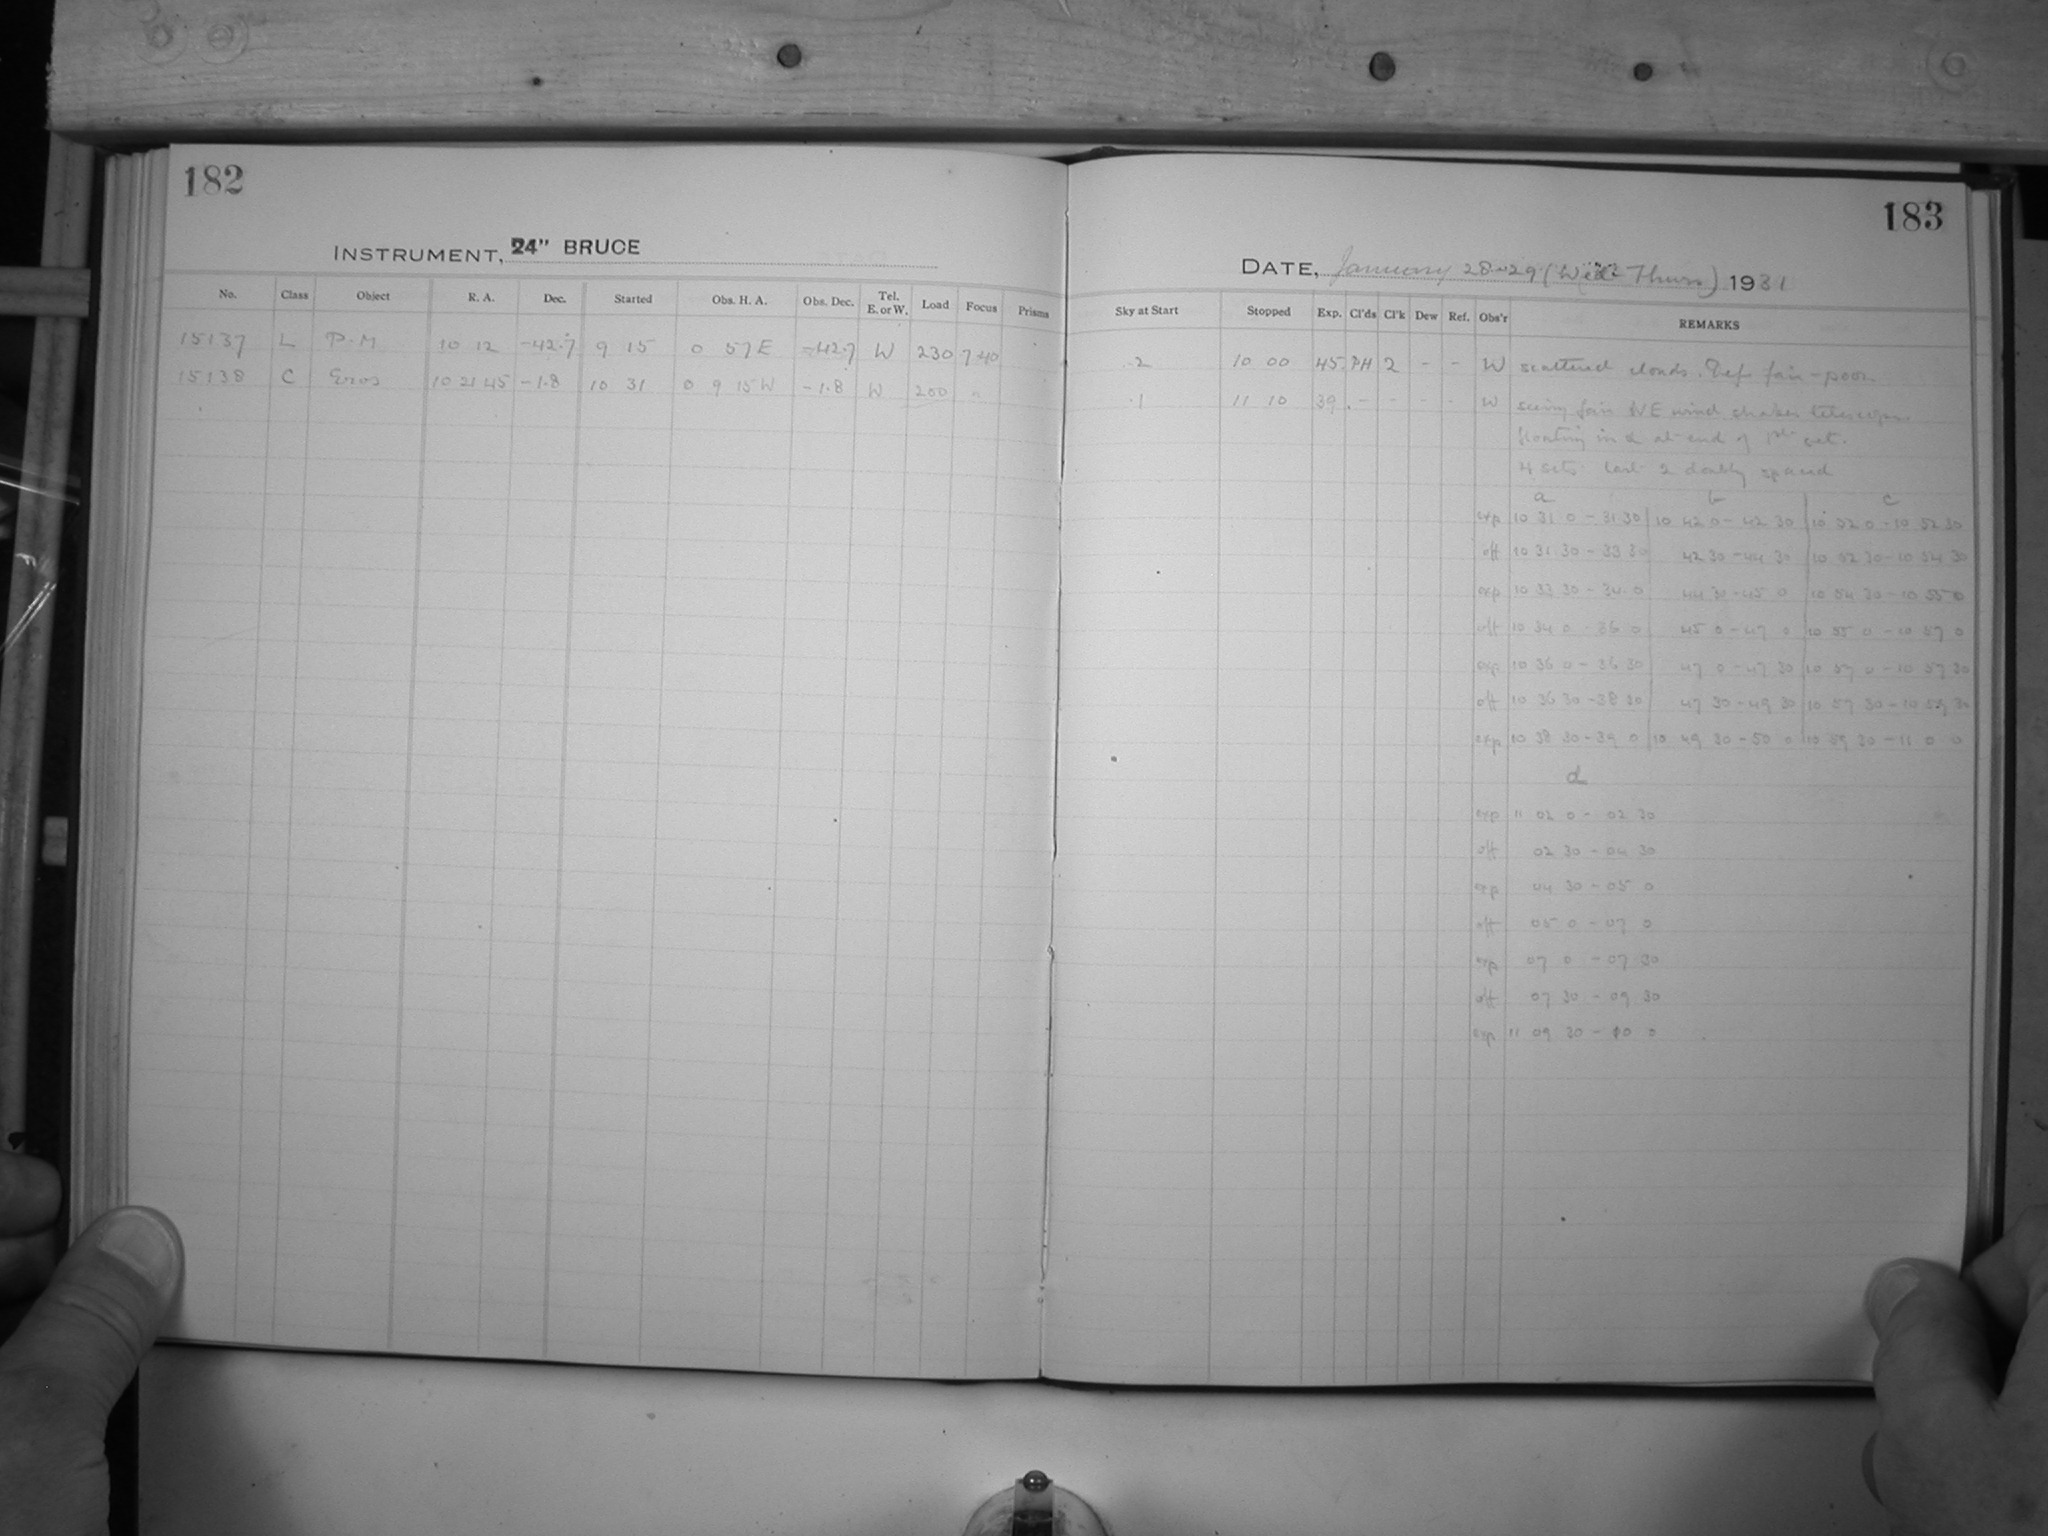 182
INSTRUMENT, 24" BRUCE
No. Class Object R. A. Dec. Started Obs. H. A. Obs. Dec. Tel. E. or W. Load Focus Prisms
15137 L P.M 10 12 -42.7 9 15 0 57 E -42.7 W 230 7.40
15138 C Eros 10 21 45 -1.8 10 31 0 9 15 W -1.8 W 200 "
183
DATE, January 28-29 (Wed-Thurs) 1931
Sky at Start Stopped Exp. Cl'ds Cl'k Dew Ref. Obs'r REMARKS
.2 10 00 45 PH 2 - - W scattered clouds. Def fair-poor
.1 11 10 39 - - - - W seeing fair NE wind shakes telescope
floating in at end of 1st set.
4 sets last 2 doubly spaced
a b c
exp 10 31 0 - 31 30 10 42 0 - 42 30 10 52 0 - 10 52 30
off 10 31 30 - 33 30 42 30 - 44 30 10 52 30 - 10 54 30
exp 10 33 30 - 34 0 44 30 - 45 0 10 54 30 - 10 55 0
off 10 34 0 - 36 0 45 0 - 47 0 10 55 0 - 10 57 0
exp 10 36 0 - 36 30 47 0 - 47 30 10 57 0 - 10 57 30
off 10 36 30 - 38 30 47 30 - 49 30 10 57 30 - 10 59 30
exp 10 38 30 - 39 0 10 49 30 - 50 0 10 59 30 - 11 0 0
d
exp 11 02 0 - 02 30
off 02 30 - 04 30
exp 04 30 - 05 0
off 05 0 - 07 0
exp 07 0 - 07 30
off 07 30 - 09 30
exp 11 09 30 - 10 0